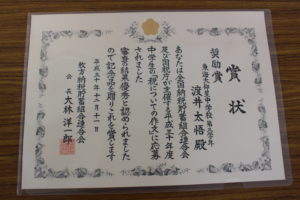 賞状
奨励賞
東海大仰星中学校 第三学年
渡井太悟殿
あなたは全国納税貯蓄組合連合会
及び国税庁が主催する平成三十年度
中学生の「税についての作文」に応募
されました
審査の結果優秀と認められました
ので記念品を贈りこれを賞します
平成三十年十二月十一日
枚方納税貯蓄組合連合会
会長 大林洋一郎